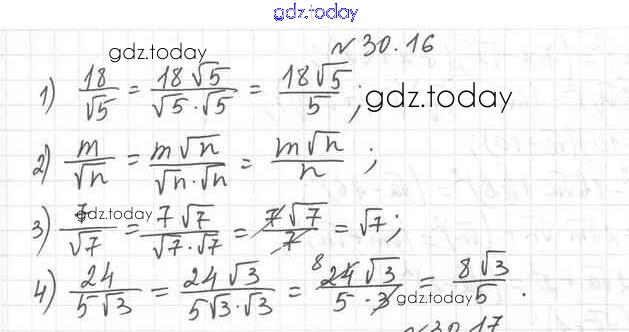 gdz.today
№30.16
gdz.today
1) 18/√5 = 18√5/√5·√5 = 18√5/5; gdz.today
2) m/√n = m√n/√n·√n = m√n/n;
3) 7/√7 = 7√7/√7·√7 = 7√7/7 = √7;
gdz.today
4) 24/5√3 = 24√3/5√3·√3 = 8 24√3/5·3 = 8√3/5.
gdz.today
№30.17